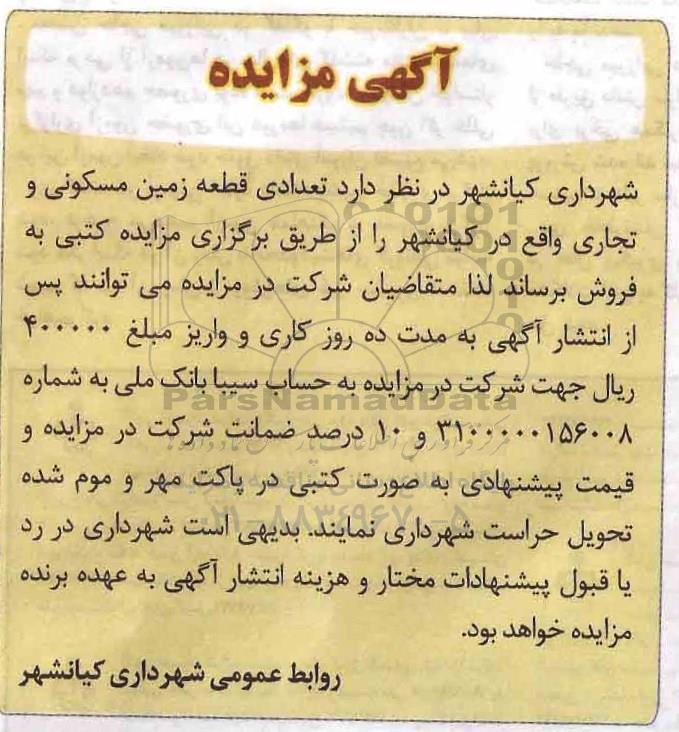 آگهی مزایده
شهرداری کیانشهر در نظر دارد تعدادی قطعه زمین مسکونی و
تجاری واقع در کیانشهر را از طریق برگزاری مزایده کتبی به
فروش برساند لذا متقاضیان شرکت در مزایده می توانند پس
از انتشار آگهی به مدت ده روز کاری و واریز مبلغ ۴۰۰۰۰۰
ریال جهت شرکت در مزایده به حساب سیبا بانک ملی به شماره
۳۱۰۰۰۰۰۱۵۶۰۰۸ و ۱۰ درصد ضمانت شرکت در مزایده و
قیمت پیشنهادی به صورت کتبی در پاکت مهر و موم شده
تحویل حراست شهرداری نمایند. بدیهی است شهرداری در رد
یا قبول پیشنهادات مختار و هزینه انتشار آگهی به عهده برنده
مزایده خواهد بود.
روابط عمومی شهرداری کیانشهر
ParsNamadData
۰۲۱-۸۸۳۴۹۶۷۰-۵